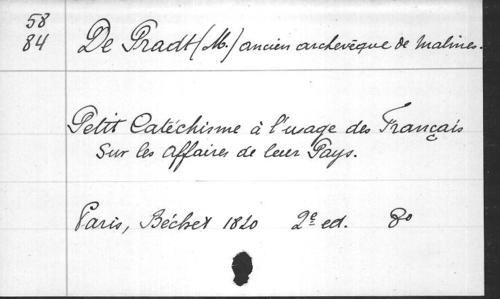 58
84
De Pradt (M.) ancien archevêque de Malines.
Petit Catéchisme à l'usage des Français
Sur les Affaires de leur Pays.
Paris, Béchet 1820 2e ed. 8o